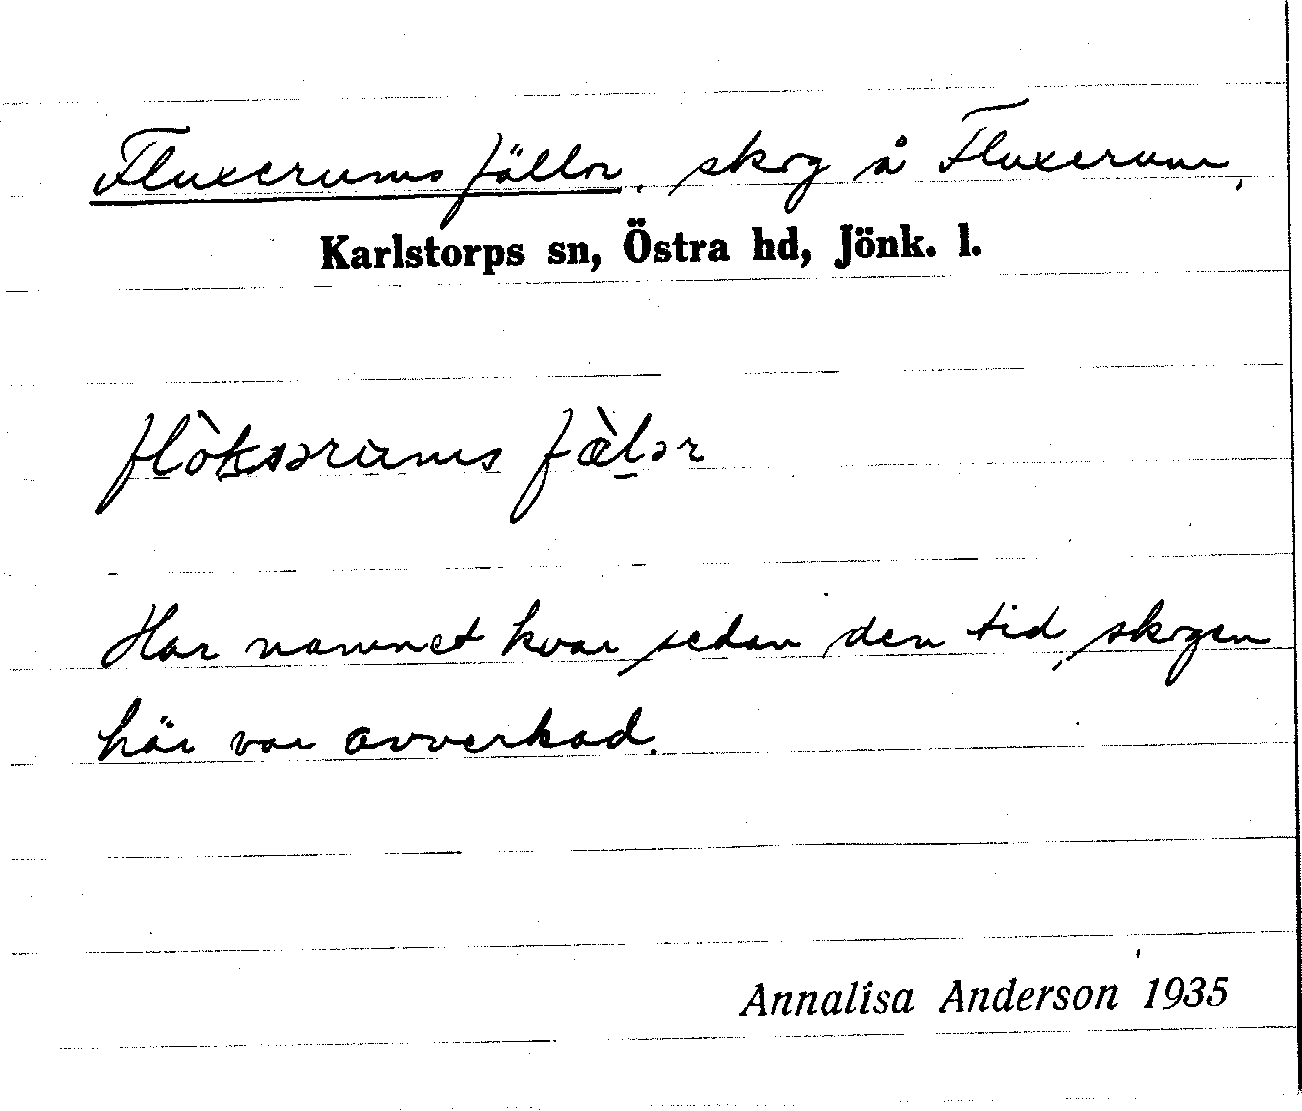 Fluxerums fällor, skog å Fluxerum,
Karlstorps sn, Östra hd, Jönk. l.
flòksərums fæ̀lər
Har namnet kvar sedan den tid, skogen
här var avverkad.
Annalisa Anderson 1935